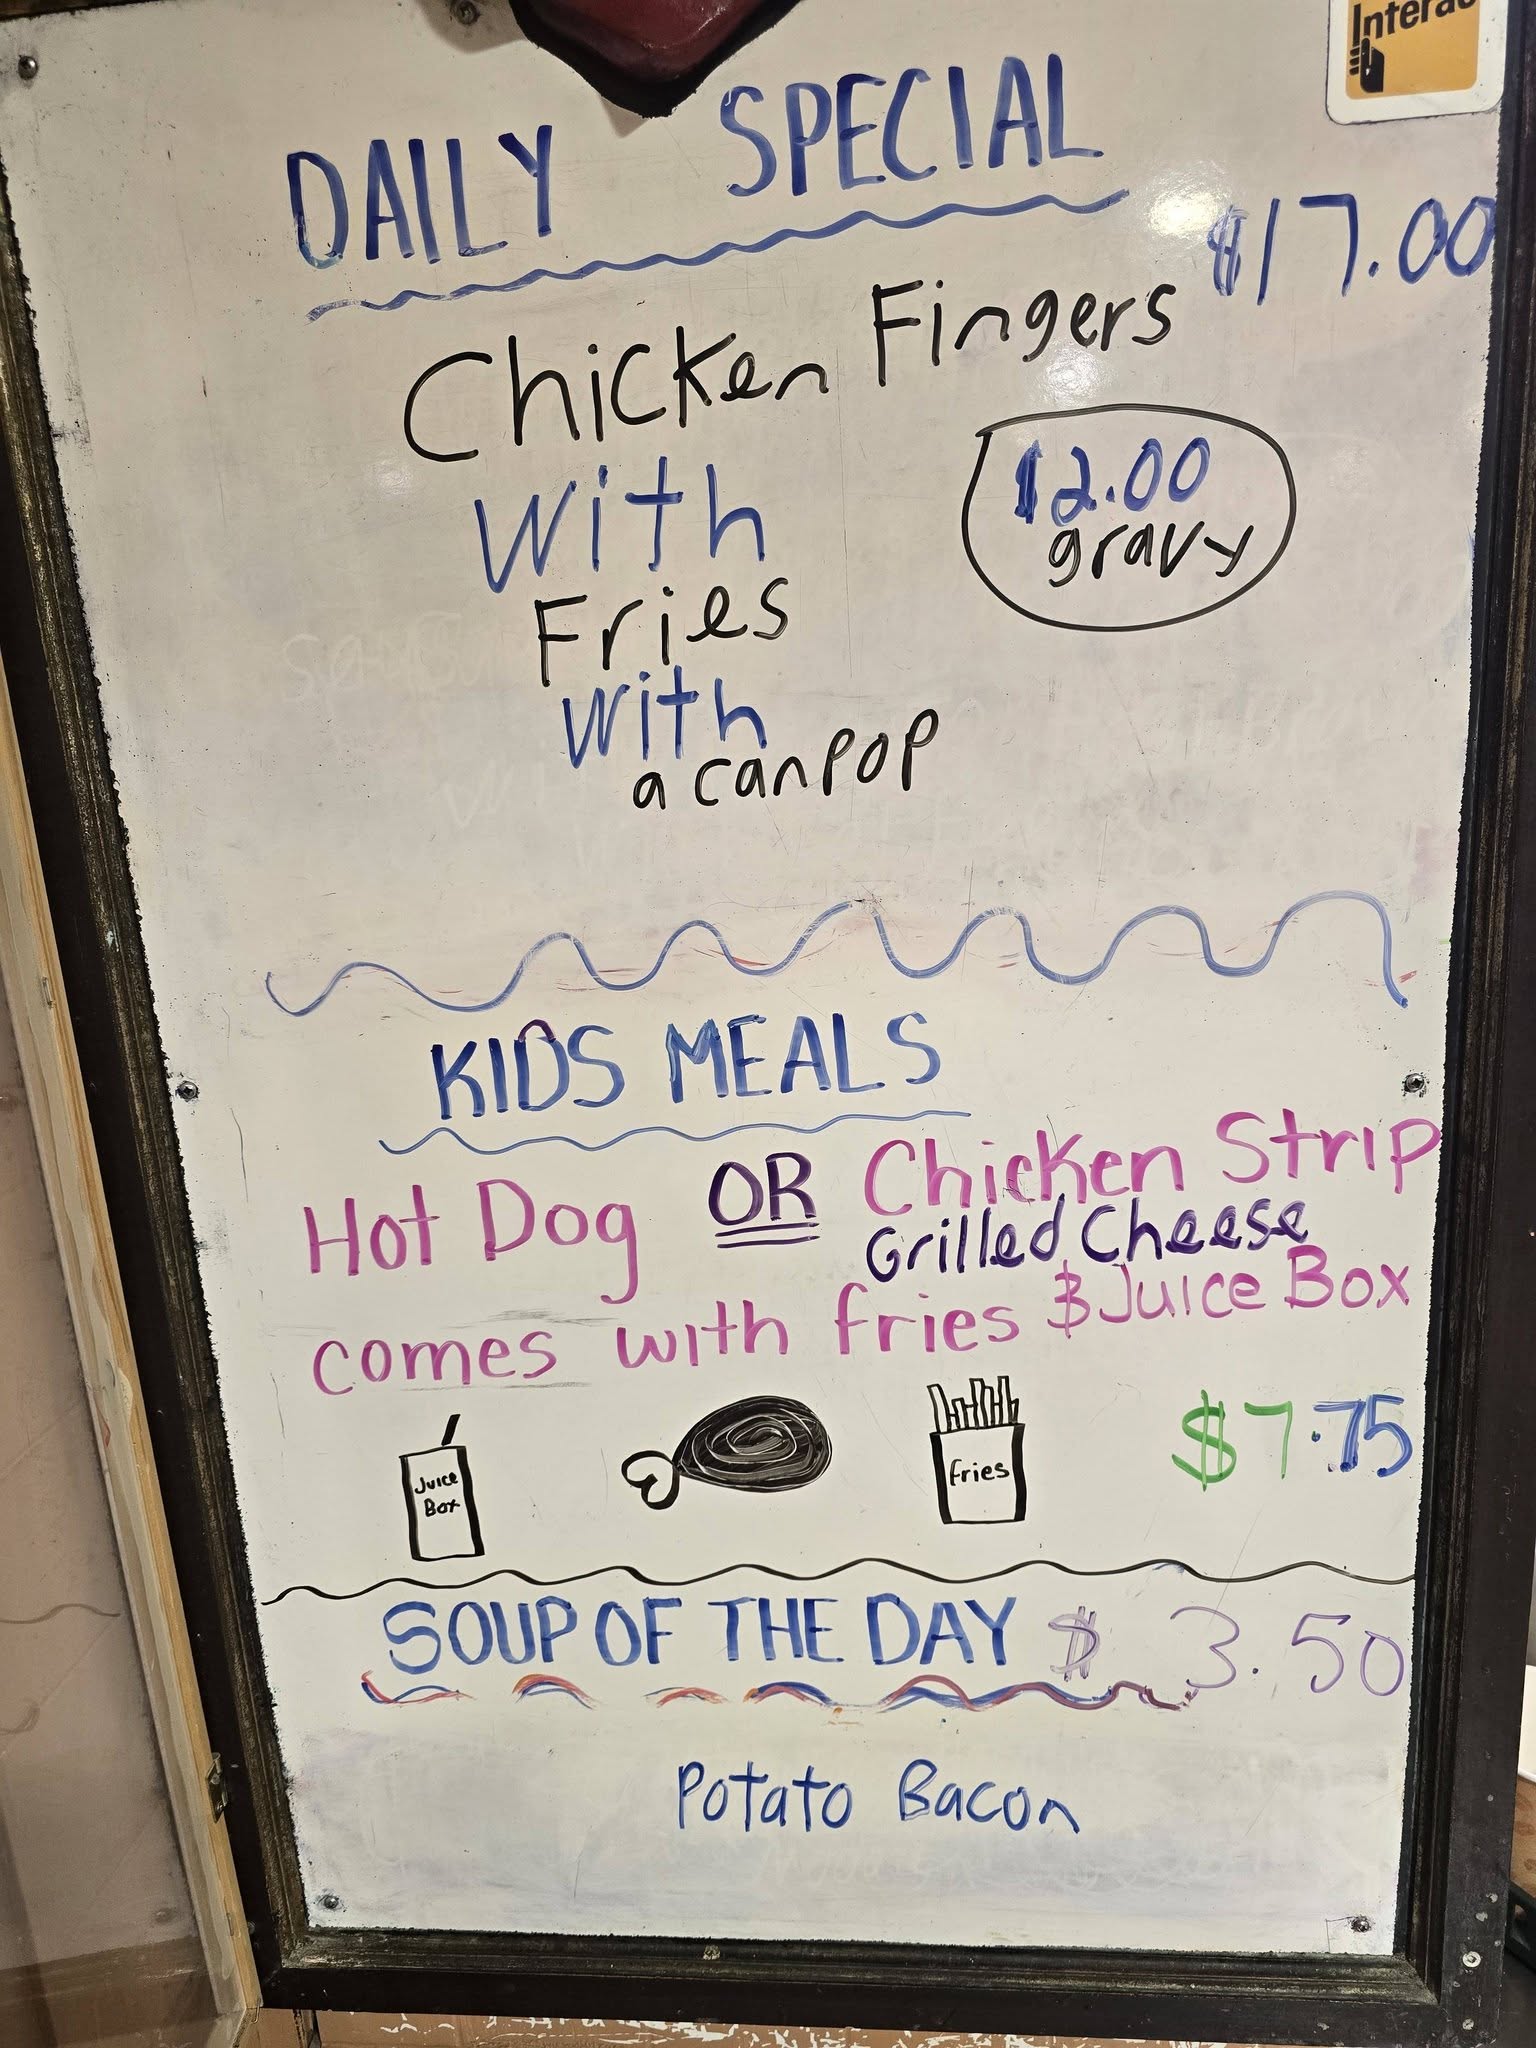 Interac
DAILY SPECIAL
$17.00
Chicken Fingers
with
$2.00
gravy
Fries
with
a can pop
KIDS MEALS
Hot Dog OR Chicken Strip
Grilled Cheese
comes with fries & Juice Box
Juice
Box
fries
$7.75
SOUP OF THE DAY $ 3.50
Potato Bacon